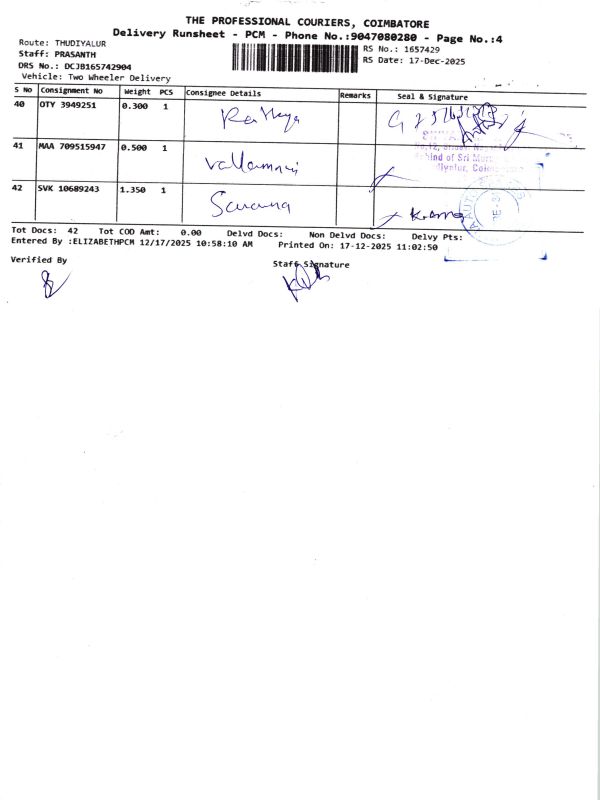 THE PROFESSIONAL COURIERS, COIMBATORE
Delivery Runsheet - PCM - Phone No.:9047080280 - Page No.:4
Route: THUDIYALUR
Staff: PRASANTH
DRS No.: DCJB165742904
Vehicle: Two Wheeler Delivery
RS No.: 1657429
RS Date: 17-Dec-2025
S No Consignment No Weight PCS Consignee Details Remarks Seal & Signature
40 OTY 3949251 0.300 1
41 MAA 709515947 0.500 1
42 SVK 10689243 1.350 1
Tot Docs: 42 Tot COD Amt: 0.00 Delvd Docs: Non Delvd Docs: Delvy Pts:
Entered By :ELIZABETHPCM 12/17/2025 10:58:10 AM Printed On: 17-12-2025 11:02:50
Verified By
Staff Signature